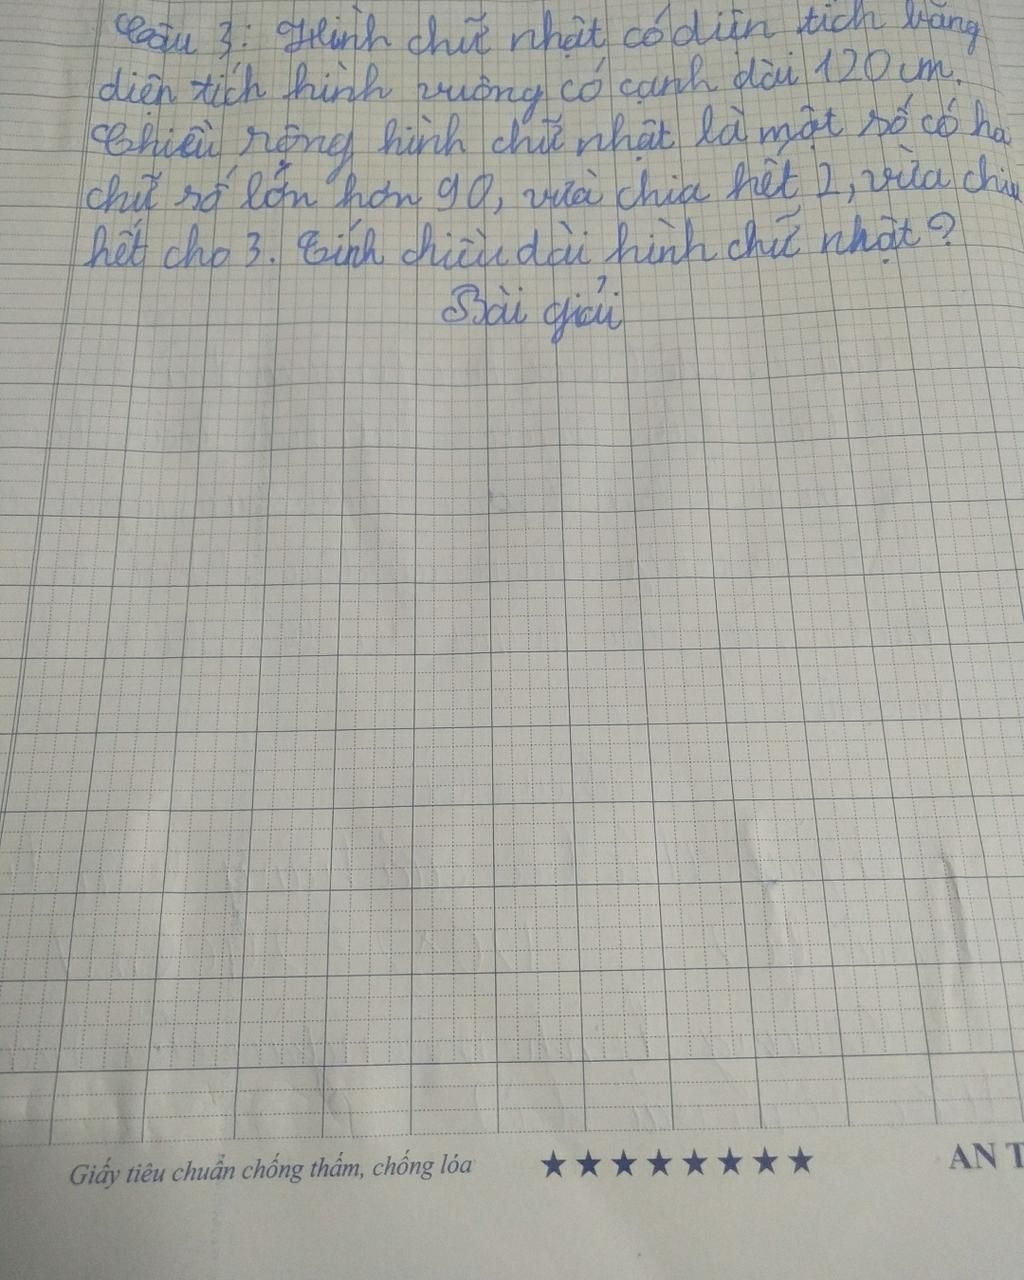 Câu 3: Hình chữ nhật có diện tích bằng
diện tích hình vuông có cạnh dài 120cm.
Chiều rộng hình chữ nhật là một số có ha
chữ số lớn hơn 90, vừa chia hết 2, vừa chia
hết cho 3. Tính chiều dài hình chữ nhật?
Bài giải
Giấy tiêu chuẩn chống thấm, chống lóa ★★★★★★★★ AN T